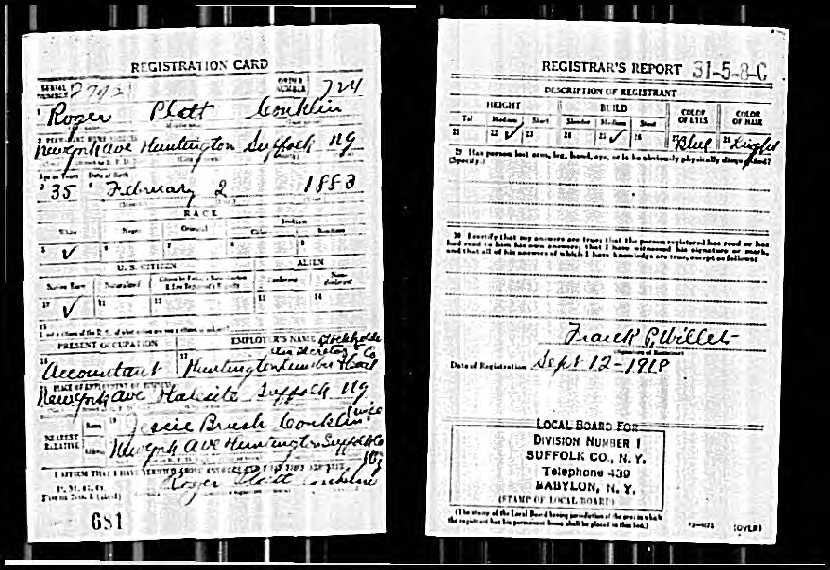 REGISTRATION CARD
SERIAL NUMBER
ORDER NUMBER 724
1 Roger Platt Conklin
2 PERMANENT HOME ADDRESS
New York Ave Huntington Suffolk NY
Age in Years Date of Birth
3 35 4 February 2 1883
RACE
White Negro Oriental Indian
5 ✓ 6 7 8 9
U. S. CITIZEN ALIEN
Native Born Naturalized Declarant Non-declarant
10 ✓ 11 12 13 14
15
PRESENT OCCUPATION EMPLOYER'S NAME
16 Accountant 17 Huntington Lumber & Coal Co
18 PLACE OF EMPLOYMENT OR BUSINESS
New York Ave Halesite Suffolk NY
NEAREST RELATIVE
Name 19 Jessie Brush Conklin wife
Address New York Ave Huntington Suffolk Co NY
I AFFIRM THAT I HAVE VERIFIED ABOVE ANSWERS
Roger Platt Conklin
681
REGISTRAR'S REPORT 31-5-8-C
DESCRIPTION OF REGISTRANT
HEIGHT BUILD COLOR OF EYES COLOR OF HAIR
Tall Medium Short Slender Medium Stout
21 22 ✓ 23 24 25 ✓ 26 27 Blue 28 Light
29 Has person lost arm, leg, hand, eye, or is he obviously physically disqualified?
(Specify.)
30 I certify that my answers are true; that the person registered has read or has
had read to him his own answers; that I have witnessed his signature or mark,
and that all of his answers of which I have knowledge are true, except as follows:
Frank P. Willets
(Signature of Registrar)
Date of Registration Sept 12-1918
LOCAL BOARD FOR
DIVISION NUMBER 1
SUFFOLK CO., N. Y.
Telephone 439
BABYLON, N. Y.
(STAMP OF LOCAL BOARD)
(The stamp of the Local Board having jurisdiction of the area in which
the registrant has his permanent home shall be placed in this box.)
(OVER)